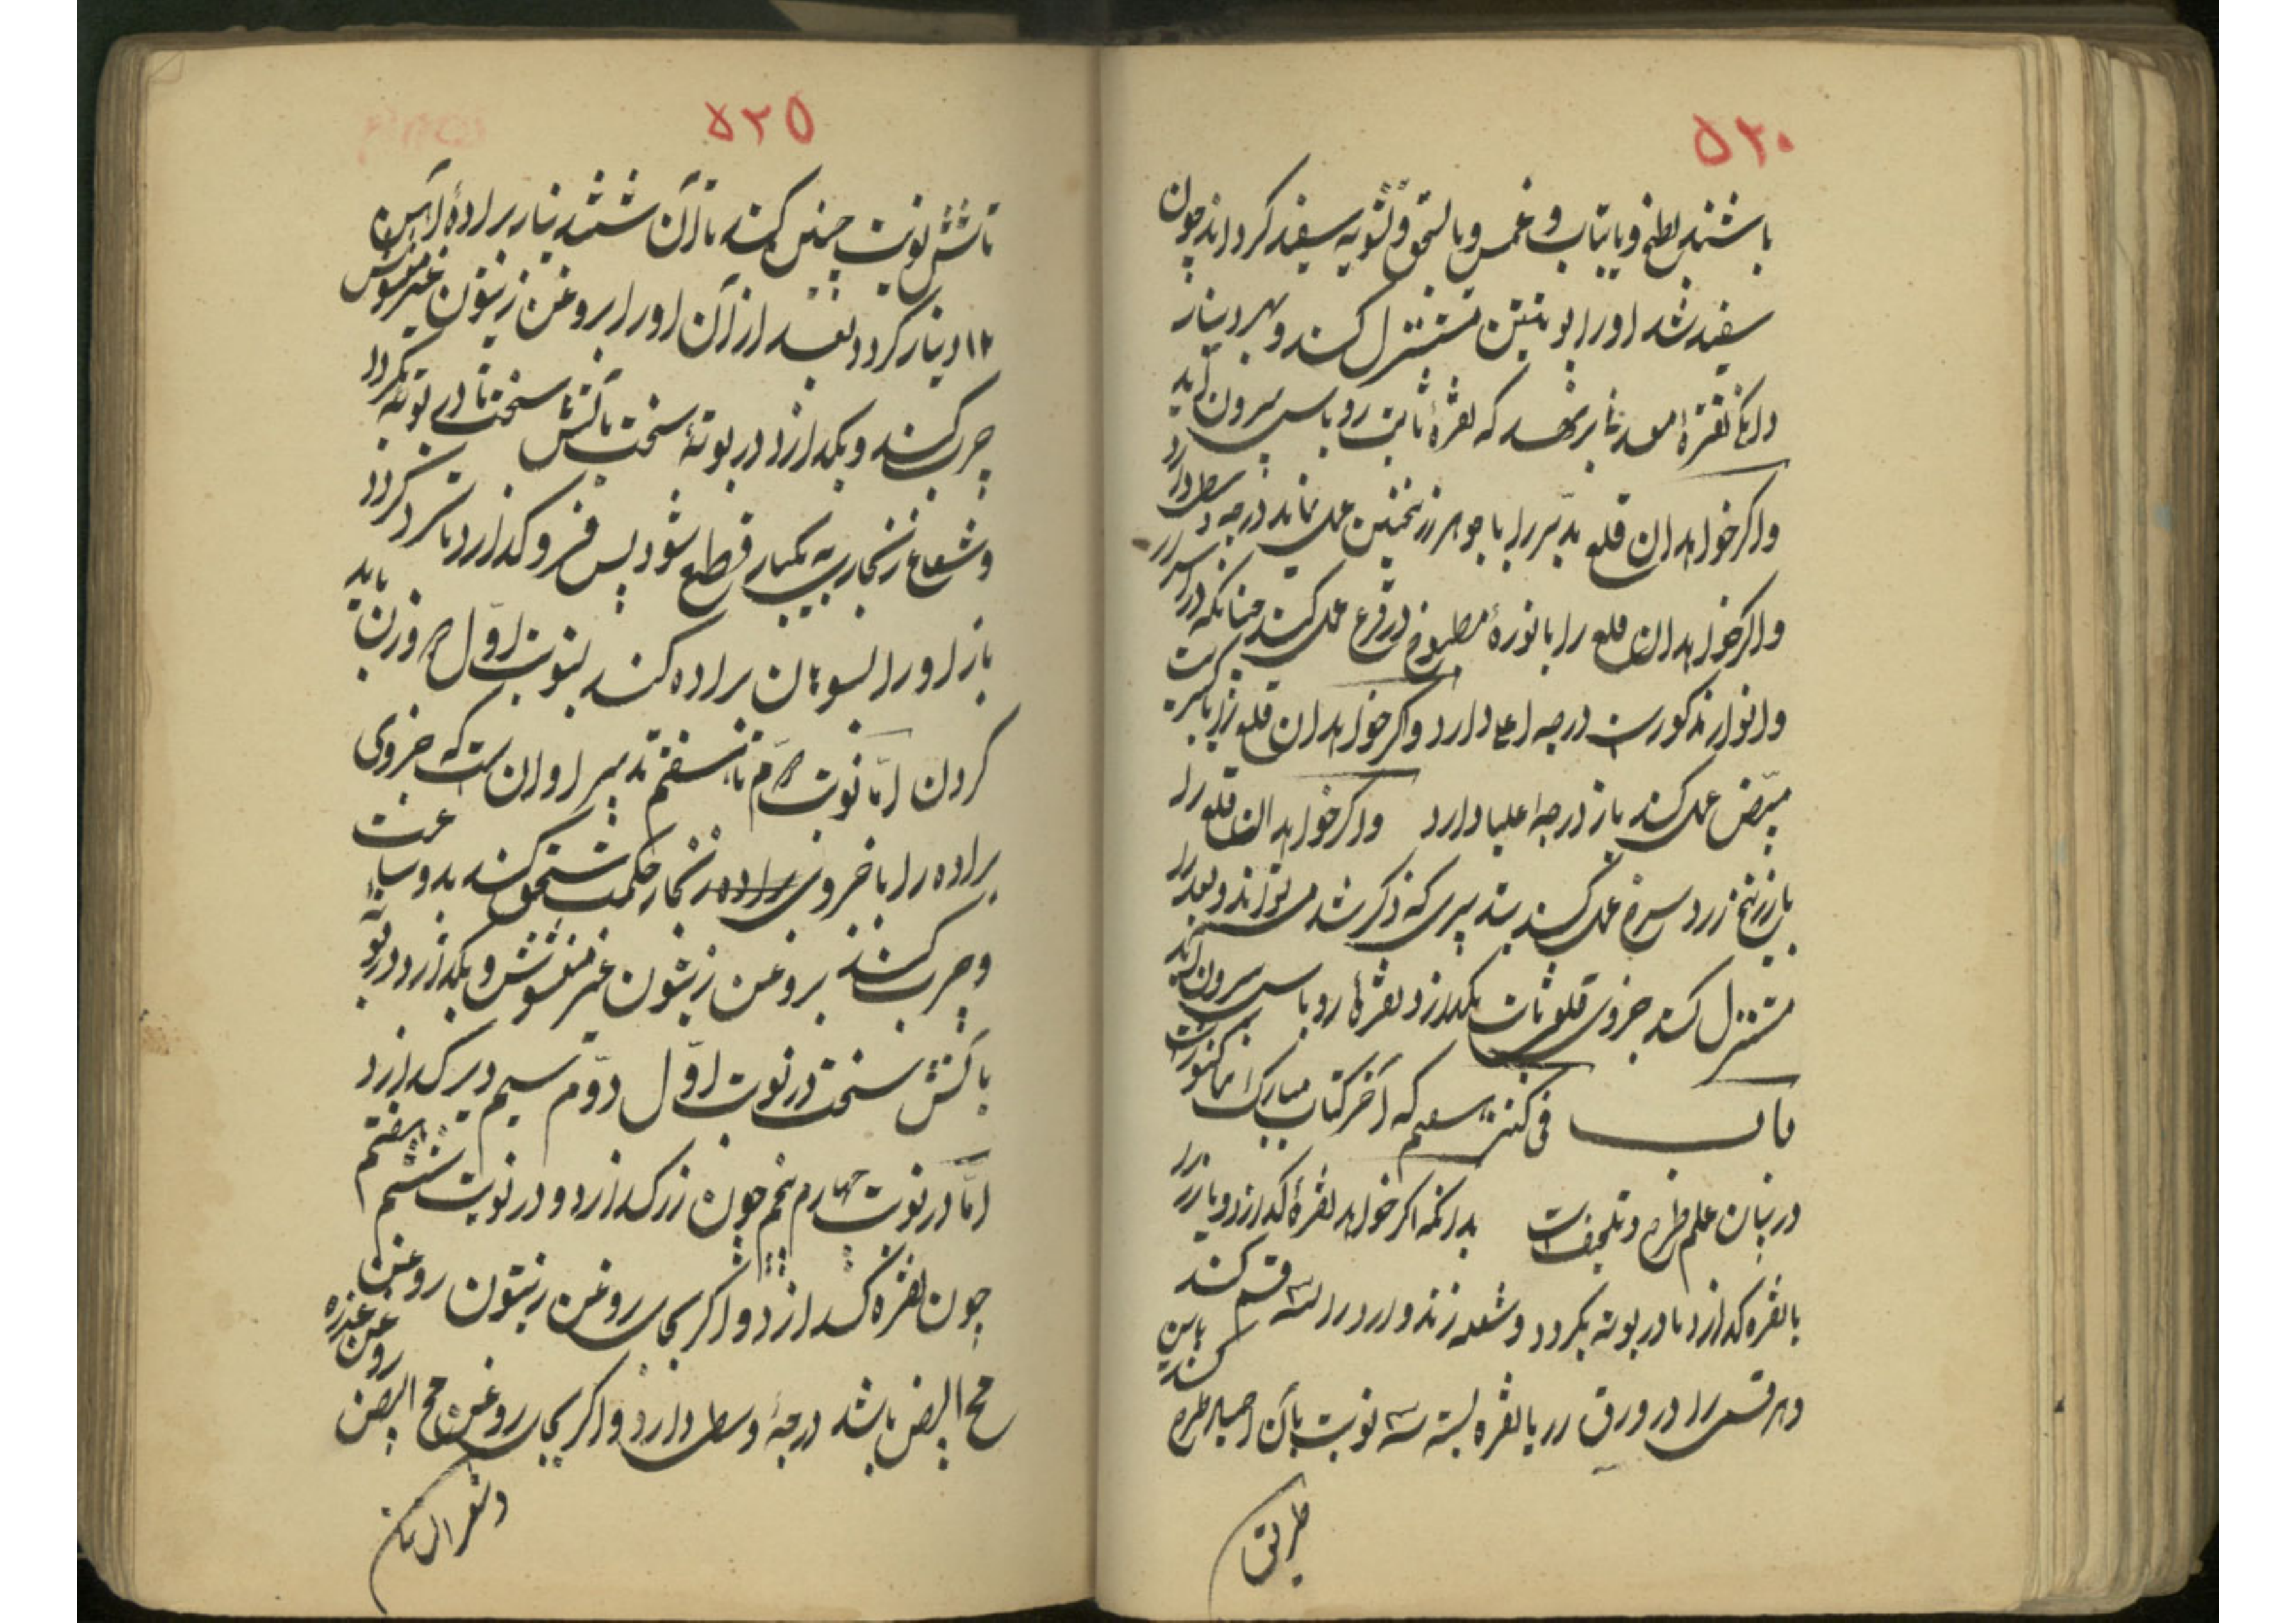 ۵۲۰
باشند بطبخ و یا بتاب و غمس و یا لسحق و تشویه سفید کرداند چون
سفید شد او را بو تین مستنزل کنند و بهر دینار
دانکا نقره معدنا برنهد که نقرهٔ ثابت روباس بیرون آید
واکر خواهد ان قلع مدبّر را با جوهر زرنیختین عمل نماید درجه وسطی دارد
واکر خواهد ان قلع را با نورهٔ مطبوخ در قرع عمل کنند چنانکه در
وانوار مذکورست درجه اعلا دارد واکر خواهد ان قلع را با کبریت
مبیّض عمل کنند باز درجه علیا دارد واکر خواهد ان قلع را
با زرنیخ زرد سرخ عمل کنند بتدبیری که ذکر شد میتوانند و بعد
مستنزل کند جزوی قلع ثابت بکدازد نقرهٔ روباس بیرون آید
باب فی کنز سیم که آخر کتاب مبارک است
در بیان علم طرح و تلخیصات بدانکه اکر خواهد نقرهٔ کدازد و یا زر را
با نقره کدازد تا در بوته بکردد و شعله زند و ارد را سه قسم کند
و هر قسمی را در ورق زر یا نقره بسته سه نوبت بآن اجساد طرح کند باین
طریق
۵۲۵
تا شش نوبت چنین کند تا آن شش دینار برادهٔ آهن
۱۲ دینار کردد بعد از آن او را بروغن زیتون غیر مغشوش
چرب کنند و بکدازد در بوتهٔ سخت بآتش سخت تا در بوته بکردد
و شعاع زنجاریه بیکبار قطع شود پس فرو کذارد تا سرد کردد
باز او را بسوهان براده کند بنوبت اوّل وزن باید
کردن امّا نوبت دوّم تا هفتم تدبیر او ان ست که جزوی
براده را با جزوی زنجار حکمت سحق کند بدو ساعت
و چرب کنند بروغن زیتون غیر مغشوش و بکدازد در بوته
بآتش سخت در نوبت اوّل دوّم سیم دیر کدازد
امّا در نوبت چهارم پنجم چون زر کدازد و در نوبت ششم هفتم
چون نقره کدازد و اکر بجای روغن زیتون روغن
مح البیض باشد درجهٔ وسطی دارد و اکر بجای روغن مح البیض روغن عذره
و شعر انسان